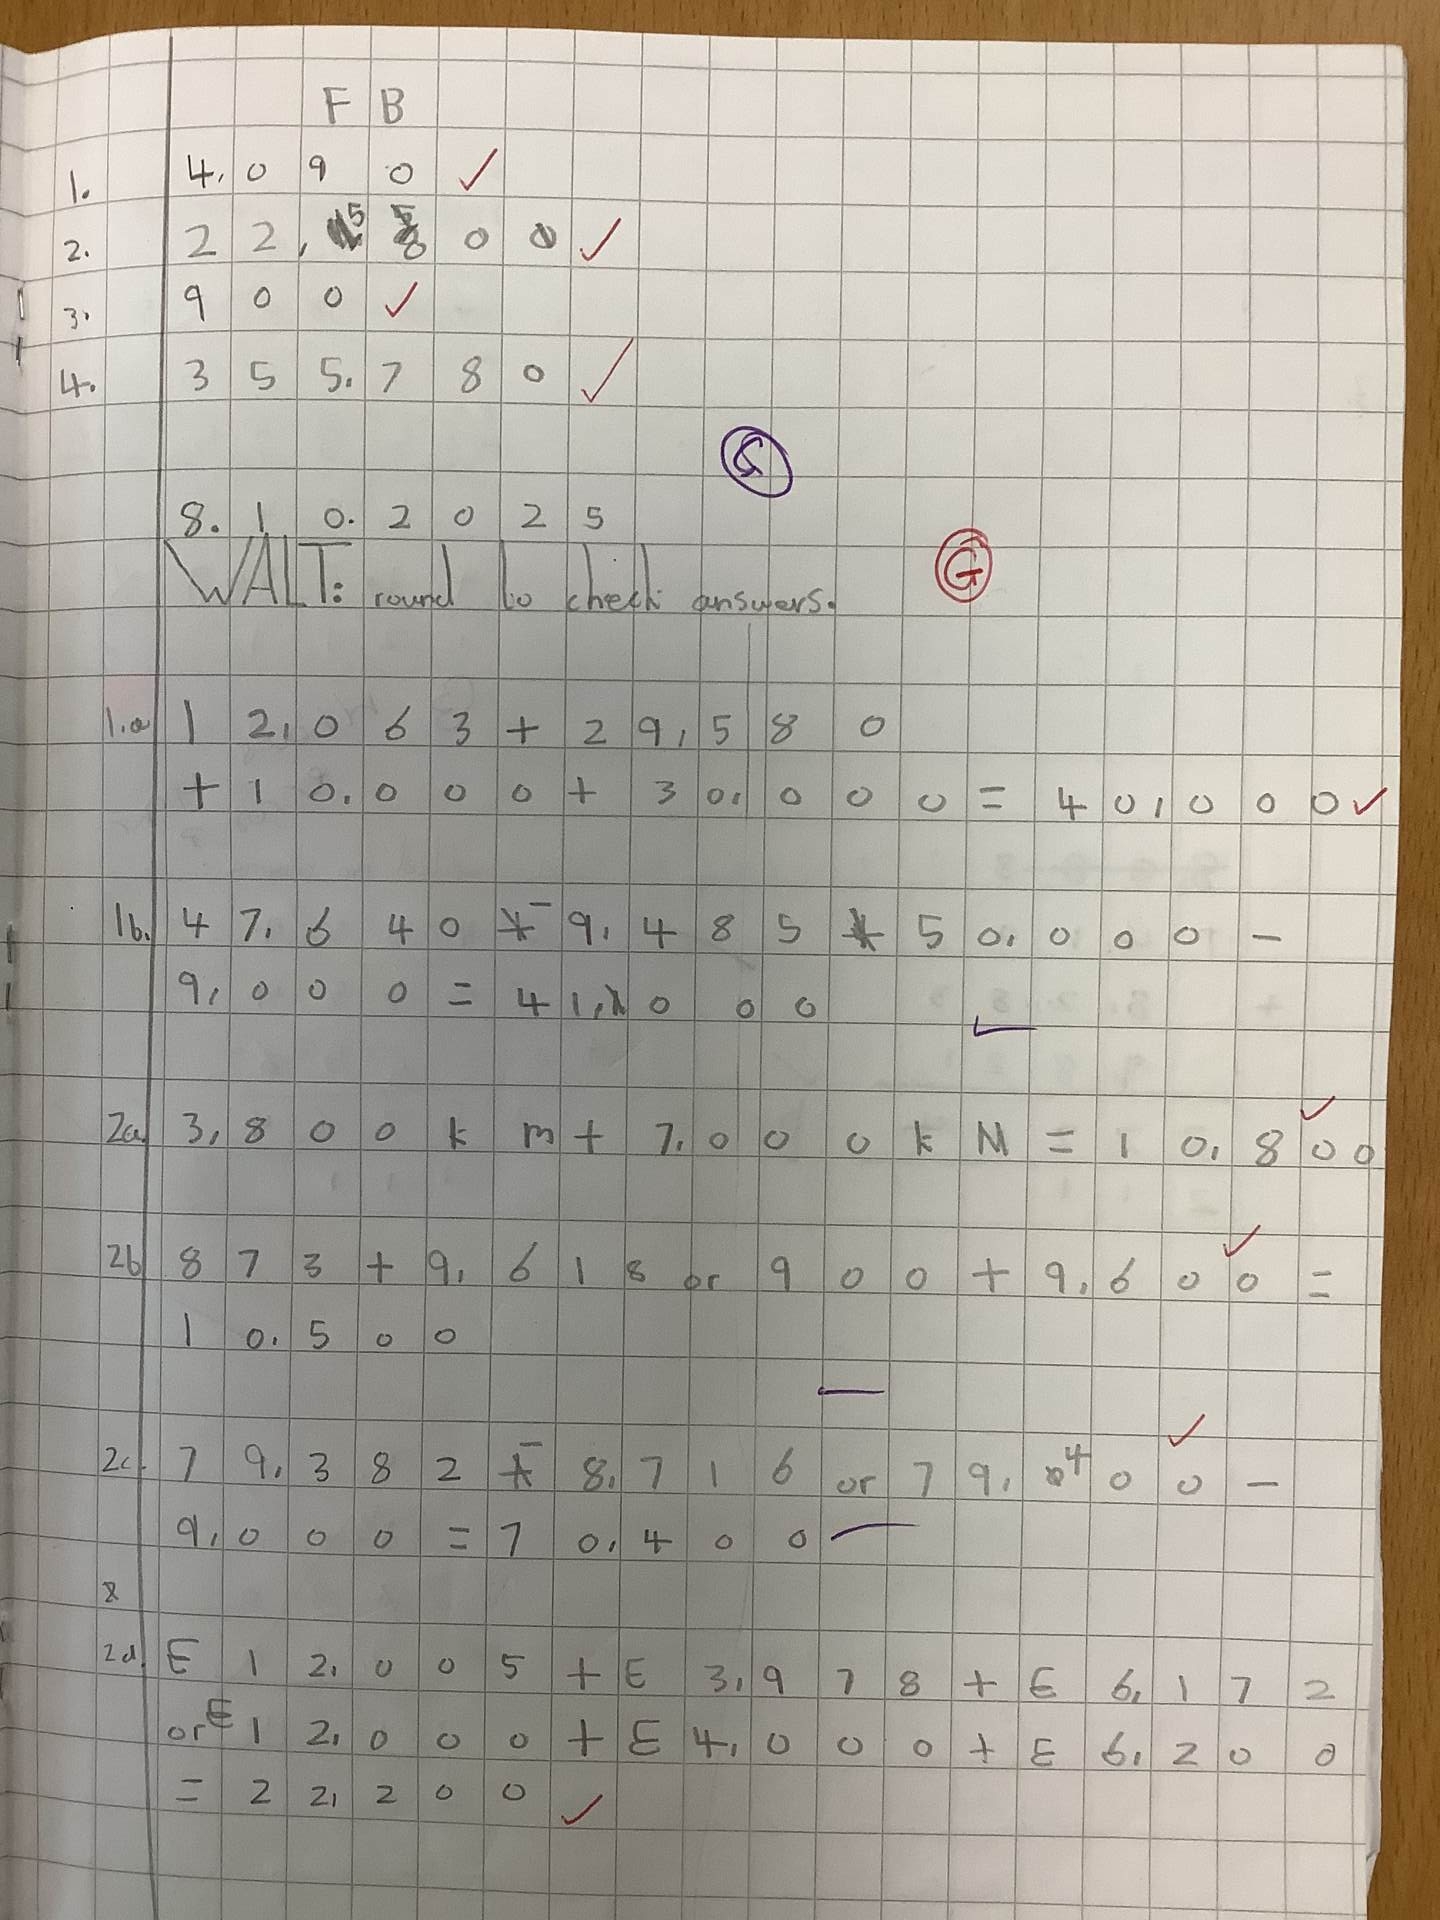 F B
1. 4,090 ✓
2. 22,5800 ✓
3. 900 ✓
4. 355.780 ✓
G
8.10.2025
WALT: round to check answers.
G
1.a 12,063 + 29,580
+10.000 + 30,000 = 40,000 ✓
1b. 47.640 - 9,485 50,000 -
9,000 = 41,000
2a. 3,800km + 7,000kM = 10,800 ✓
2b 873 + 9,618 or 900 + 9,600 = ✓
10.500
2c. 79,382 - 8,716 or 79,400 - ✓
9,000 = 70,400
2d. £12,005 + £3,978 + £6,172
or £12,000 + £4,000 + £6,200
= 22,200 ✓